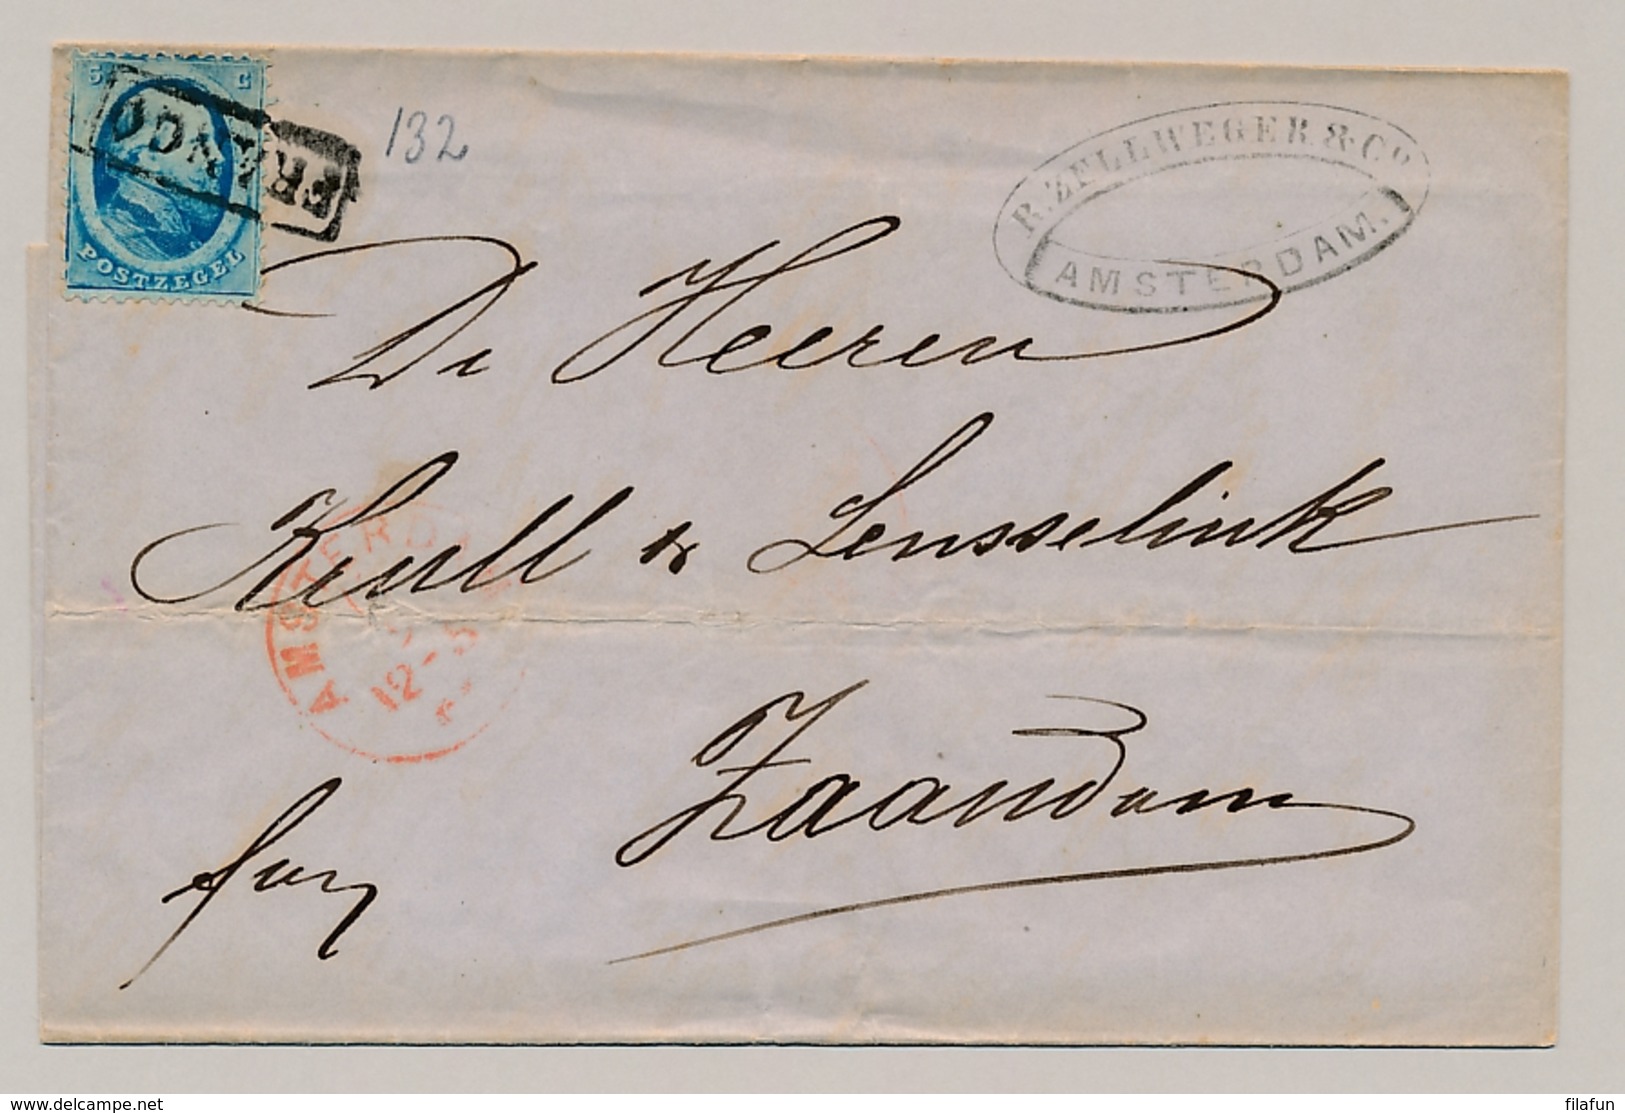 5 C
FRANCO
POSTZEGEL
132
R. ZELLWEGER & Co
AMSTERDAM.
De Heeren
Krull & Lensselink
AMSTERDAM
12-5
Zaandam
franco
delcampe.net
filafun